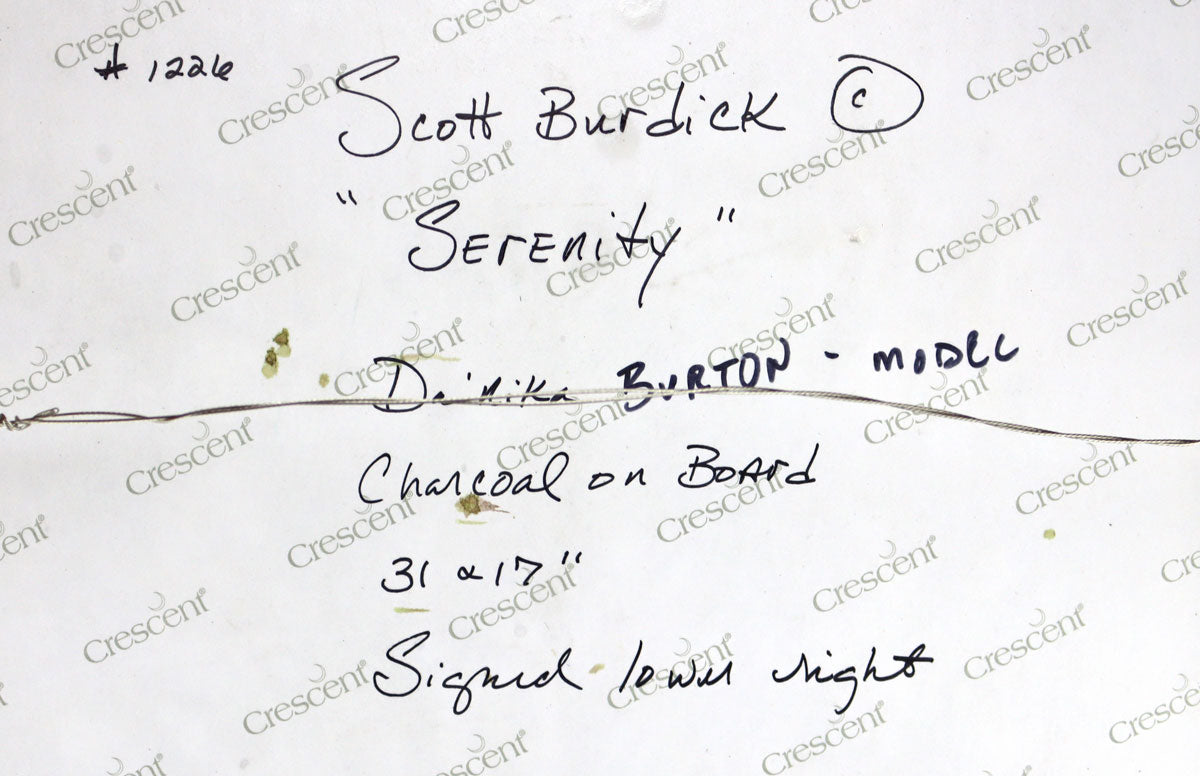 # 1226
Scott Burdick ©
"Serenity"
BURTON - MODEL
Charcoal on Board
31 x 17"
Signed lower right
Crescent